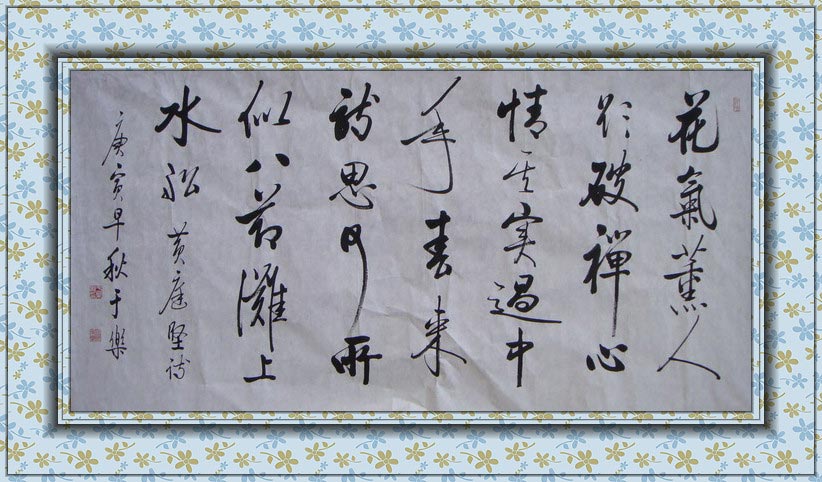 花氣薰人
欲破禪心
情其実過中
年春来
詩思何所
似八節灘上
水船 黄庭坚詩
庚寅早秋于樂